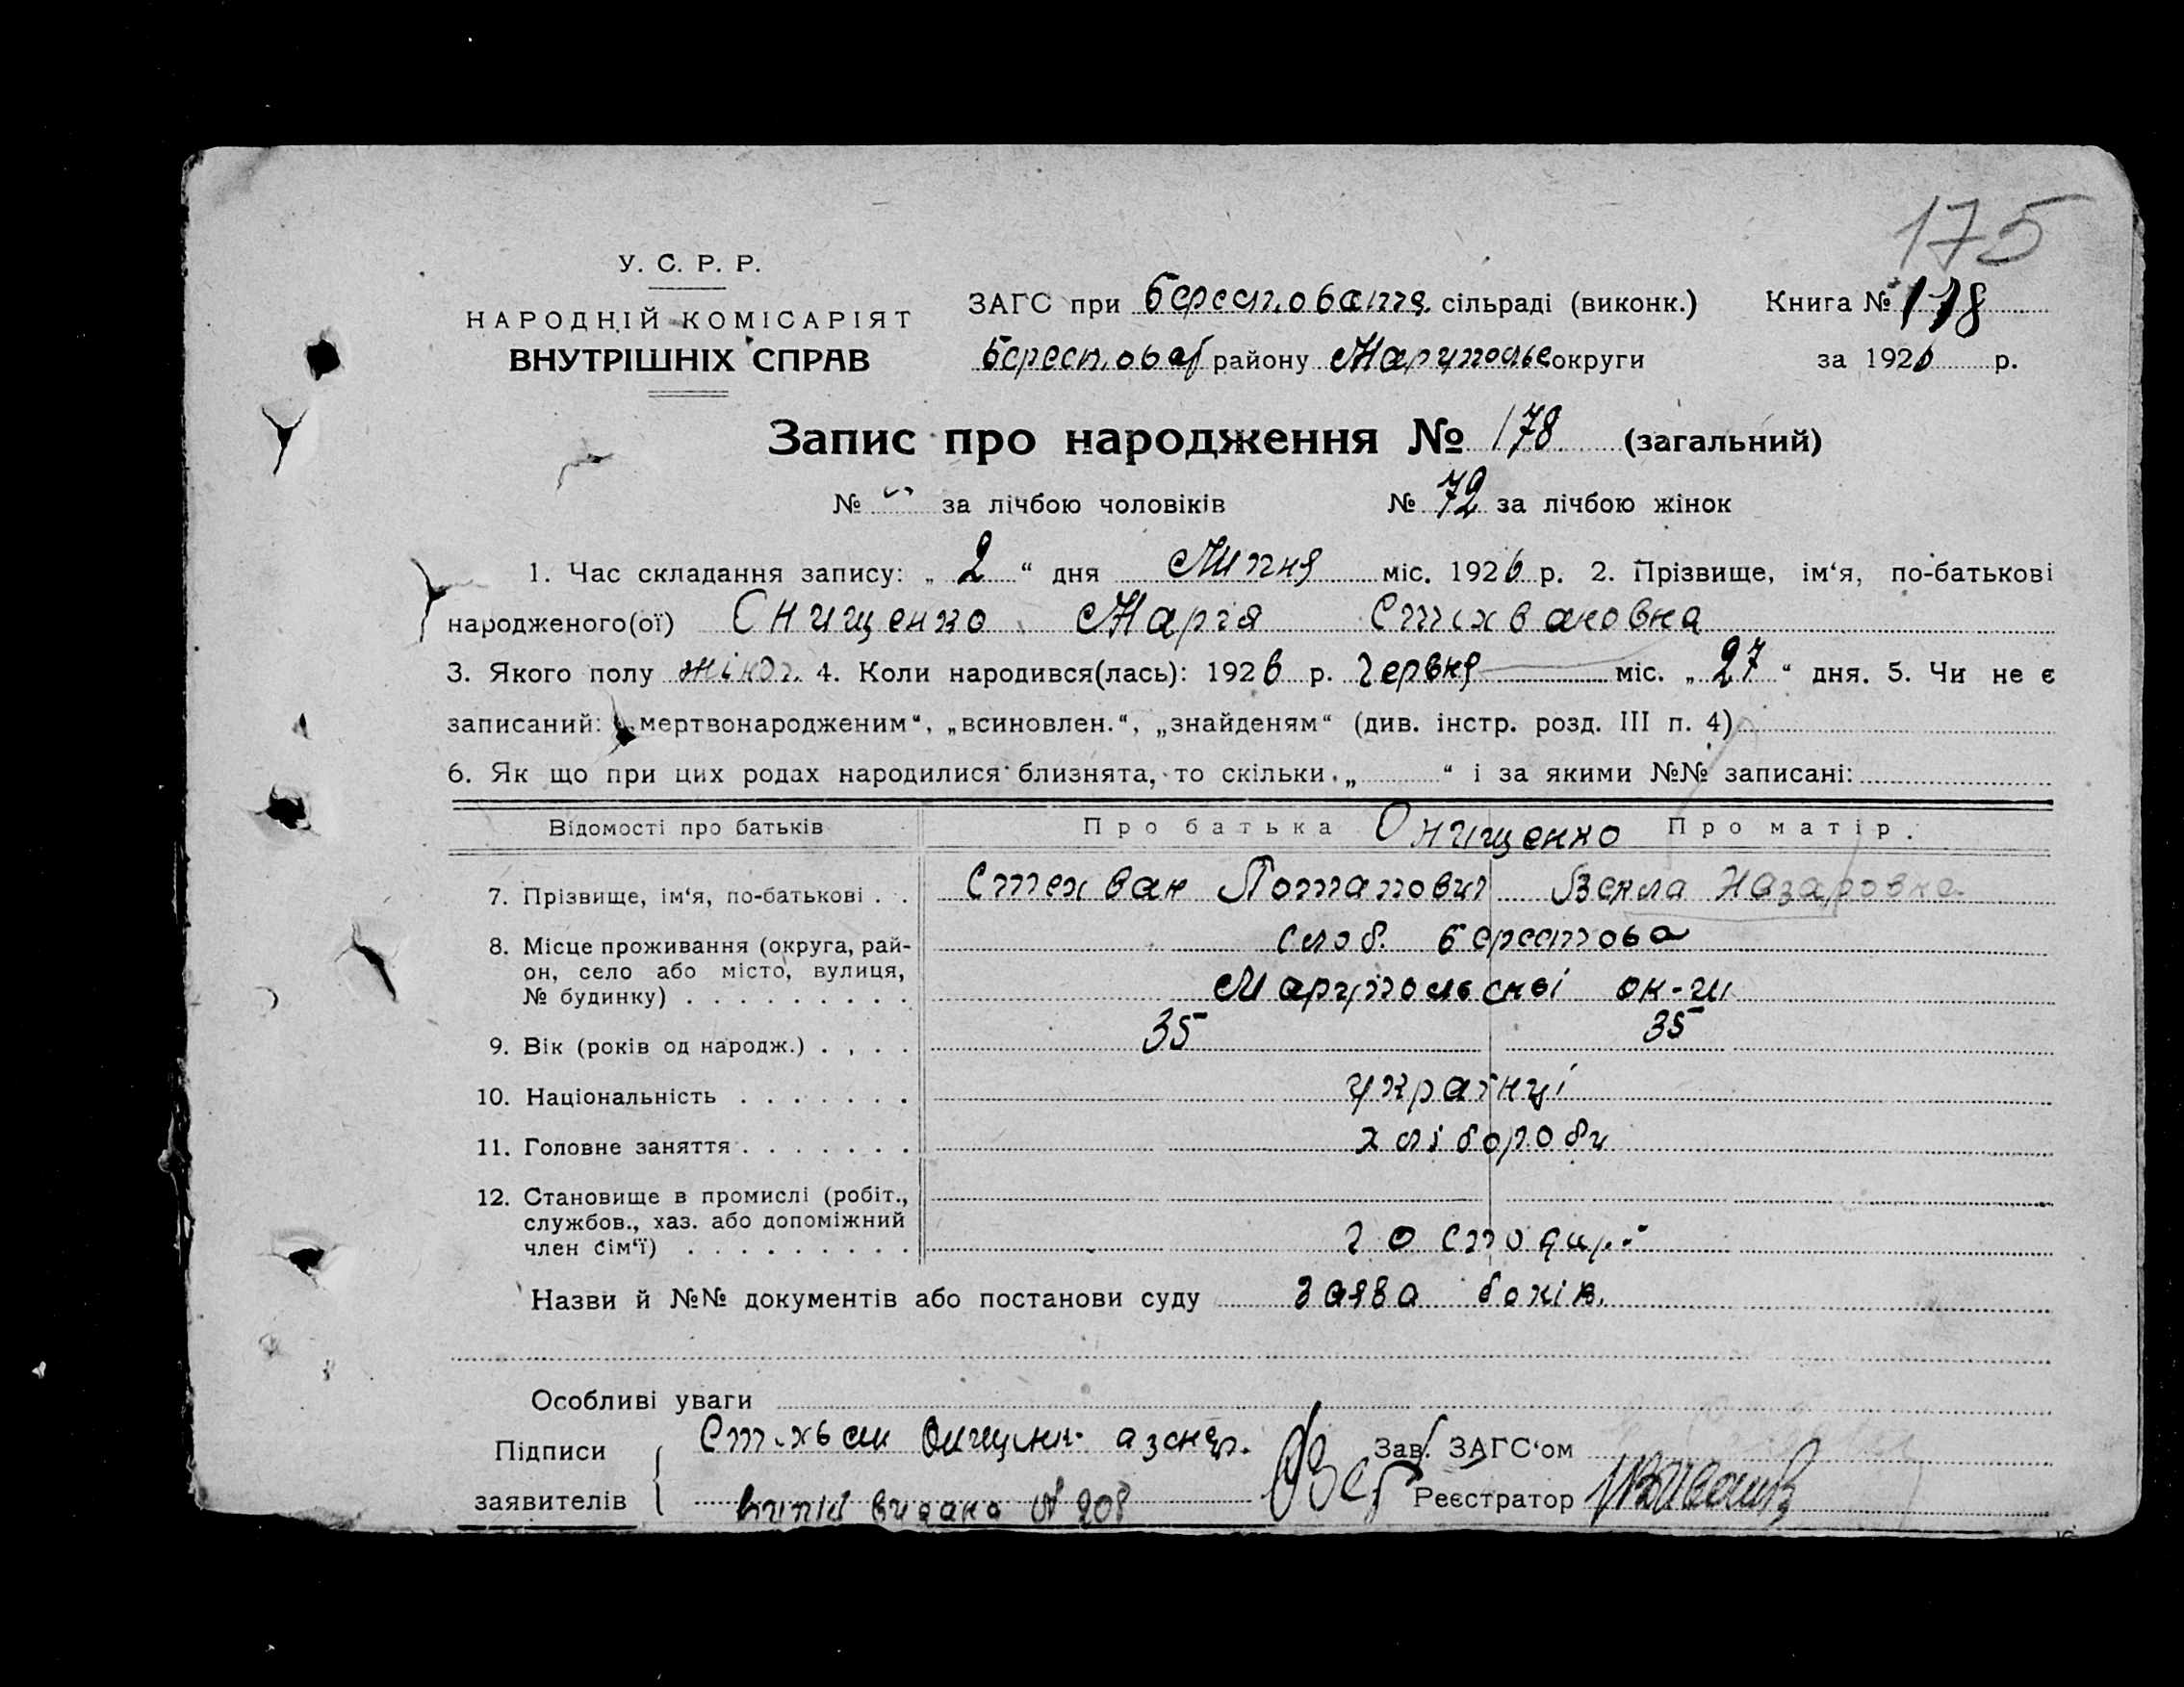 175
У. С. Р. Р.
НАРОДНІЙ КОМІСАРІЯТ
ВНУТРІШНІХ СПРАВ
ЗАГС при сільраді (виконк.) Книга № 178
району округи за 1926 р.
Запис про народження № 178 (загальний)
№ „ за лічбою чоловіків № 72 за лічбою жінок
1. Час складання запису: „ 2 “ дня Липня міс. 1926 р. 2. Прізвище, ім‘я, по-батькові
народженого(ої) Онищенко Марія
3. Якого полу жіноч. 4. Коли народився(лась): 1926 р. Червня міс. „ 27 “ дня. 5. Чи не є
записаний: „мертвонародженим“, „всиновлен.“, „знайденям“ (див. інстр. розд. III п. 4)
6. Як що при цих родах народилися близнята, то скільки „ “ і за якими №№ записані:
Відомості про батьків Про батька Онищенко Про матір.
7. Прізвище, ім‘я, по-батькові . . Потапович Векла Назаровна
8. Місце проживання (округа, рай- слоб. Берестова
он, село або місто, вулиця,
№ будинку) . . . . . . . . . ок-ги
9. Вік (років од народж.) . . . . 35 35
10. Національність . . . . . . . українці
11. Головне заняття . . . . . . . хлібороби
12. Становище в промислі (робіт.,
службов., хаз. або допоміжний
член сім‘ї) . . . . . . . . .
Назви й №№ документів або постанови суду заява
Особливі уваги
Підписи Зав. ЗАГС‘ом
заявителів видана № 208 Реєстратор